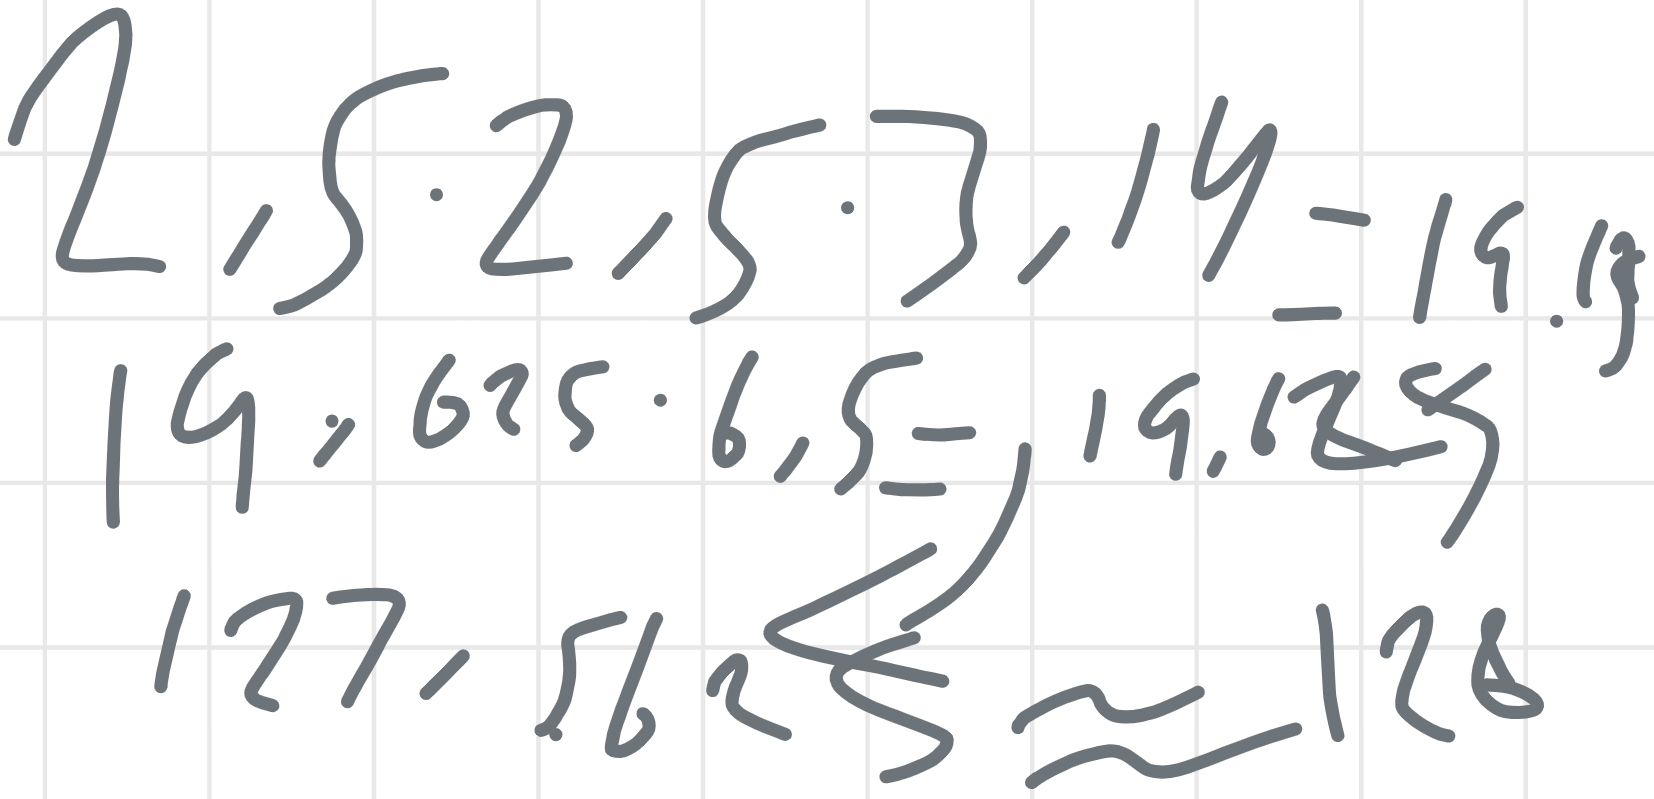 2,5·2,5·3,14=19.
19,625·6,5=19.625
127,5625≈128